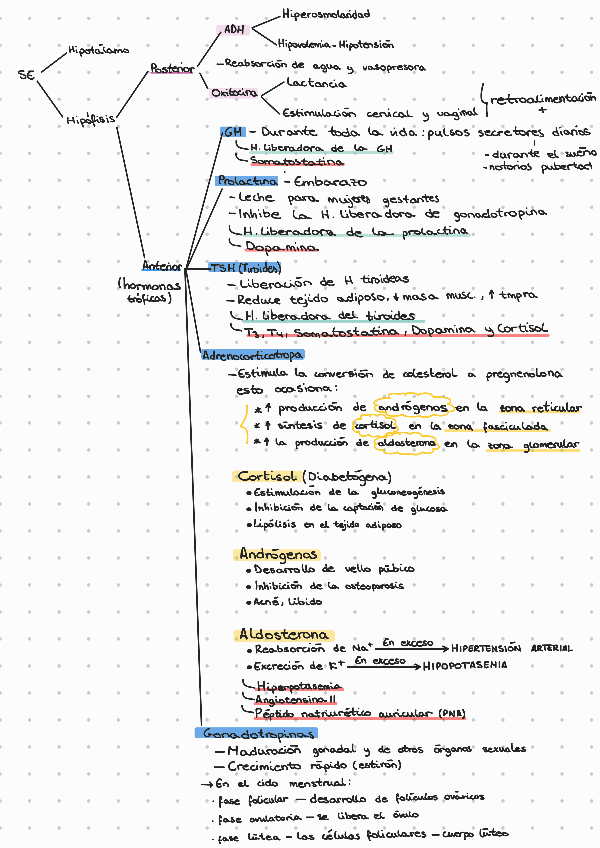 SE
Hipotálamo
Hipófisis
Posterior
ADH
Hiperosmolaridad
Hipovolemia - Hipotensión
- Reabsorción de agua y vasopresora
Oxitocina
Lactancia
Estimulación cervical y vaginal
retroalimentación
+
Anterior
(hormonas
tróficas)
GH - Durante toda la vida: pulsos secretores diarios
- durante el sueño
- notorios pubertad
H. liberadora de la GH
Somatostatina
Prolactina - Embarazo
- Leche para mujeres gestantes
- Inhibe la H. liberadora de gonadotropina
H. liberadora de la prolactina
Dopamina
TSH (Tiroides)
- Liberación de H tiroideas
- Reduce tejido adiposo, ↓ masa musc., ↑ tmpra
H. liberadora del tiroides
T3, T4, Somatostatina, Dopamina y Cortisol
Adrenocorticotropa
- Estimula la conversión de colesterol a pregnenolona
esto ocasiona:
* ↑ producción de andrógenos en la zona reticular
* ↑ síntesis de cortisol en la zona fasciculada
* ↑ la producción de aldosterona en la zona glomerular
Cortisol (Diabetógena)
• Estimulación de la gluconeogénesis
• Inhibición de la captación de glucosa
• Lipólisis en el tejido adiposo
Andrógenos
• Desarrollo de vello púbico
• Inhibición de la osteoporosis
• Acné, Líbido
Aldosterona
• Reabsorción de Na+ En exceso → HIPERTENSIÓN ARTERIAL
• Excreción de K+ En exceso → HIPOPOTASEMIA
Hiperpotasemia
Angiotensina II
Péptido natriurético auricular (PNA)
Gonadotropinas
- Maduración gonadal y de otros órganos sexuales
- Crecimiento rápido (estirón)
→ En el ciclo menstrual:
· fase folicular - desarrollo de folículos ováricos
· fase ovulatoria - se libera el óvulo
· fase lútea - las células foliculares - cuerpo lúteo